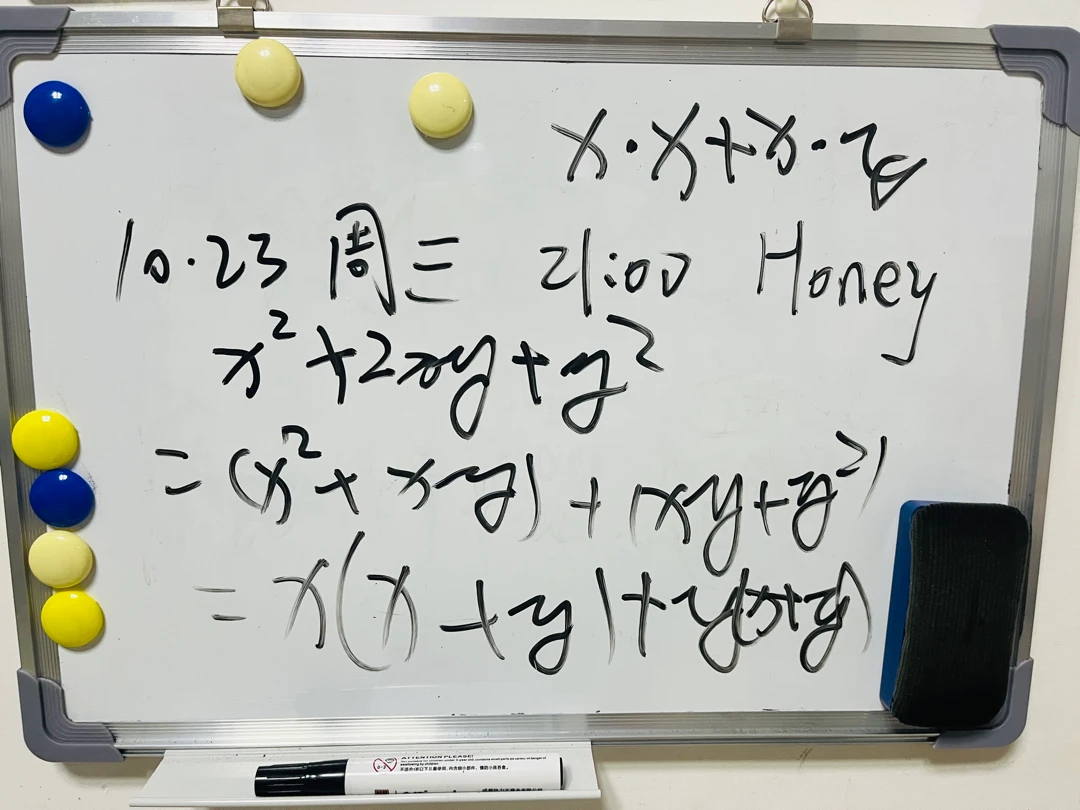 x·x+x·y
10.23 周三 21:00 Honey
x²+2xy+y²
=(x²+xy)+(xy+y²)
=x(x+y)+y(x+y)
ATTENTION PLEASE!